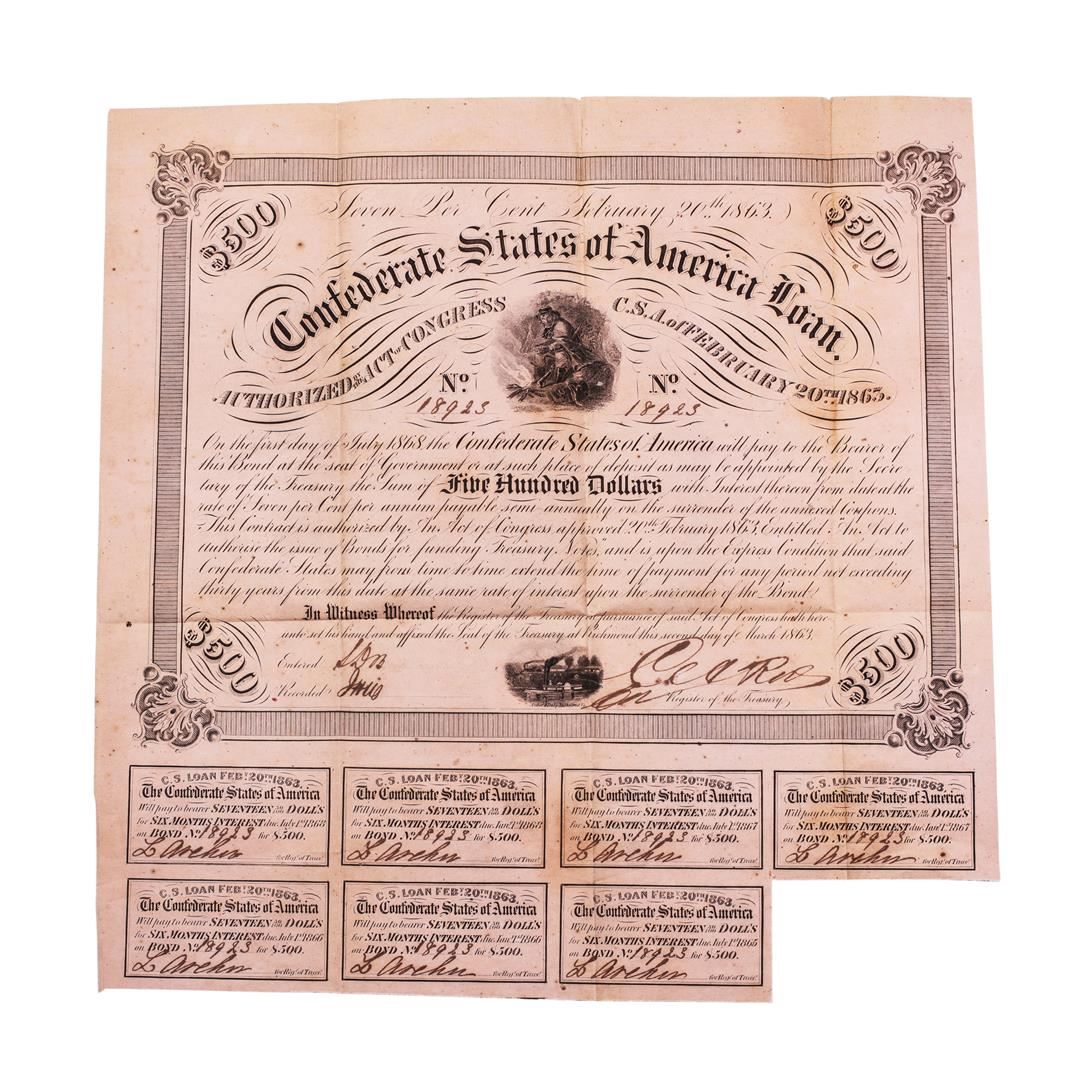 $500
Seven Per Cent February 20th 1863.
$500
Confederate States of America Loan.
AUTHORIZED BY ACT OF CONGRESS
C.S.A. of FEBRUARY 20TH 1863.
No No
18923 18923
On the first day of July 1868 the Confederate States of America will pay to the Bearer of
this Bond at the seat of Government or at such place of deposit as may be appointed by the Secre
tary of the Treasury the Sum of Five Hundred Dollars with Interest thereon from date at the
rate of Seven per Cent per annum payable semi annually on the surrender of the annexed Coupons.
This Contract is authorized by An Act of Congress approved 20th February 1863, Entitled "An Act to
authorise the issue of Bonds for funding Treasury Notes," and is upon the Express Condition that said
Confederate States may from time to time extend the time of payment for any period not exceeding
thirty years from this date at the same rate of interest upon the surrender of the Bond.
In Witness Whereof the Register of the Treasury in pursuance of said Act of Congress hath here
unto set his hand and affixed the Seal of the Treasury at Richmond this second day of March 1863.
$500
Entered
Recorded
Register of the Treasury
$500
C.S. LOAN FEBY. 20TH 1863.
The Confederate States of America
Will pay to bearer SEVENTEEN 50/100 DOLLS
for SIX MONTHS INTEREST due July 1st 1868
on BOND No. 18923 for $500.
for Regr. of Treasr.
C.S. LOAN FEBY. 20TH 1863.
The Confederate States of America
Will pay to bearer SEVENTEEN 50/100 DOLLS
for SIX MONTHS INTEREST due Jany. 1st 1868
on BOND No. 18923 for $500.
for Regr. of Treasr.
C.S. LOAN FEBY. 20TH 1863.
The Confederate States of America
Will pay to bearer SEVENTEEN 50/100 DOLLS
for SIX MONTHS INTEREST due July 1st 1867
on BOND No. 18923 for $500.
for Regr. of Treasr.
C.S. LOAN FEBY. 20TH 1863.
The Confederate States of America
Will pay to bearer SEVENTEEN 50/100 DOLLS
for SIX MONTHS INTEREST due Jany. 1st 1867
on BOND No. 18923 for $500.
for Regr. of Treasr.
C.S. LOAN FEBY. 20TH 1863.
The Confederate States of America
Will pay to bearer SEVENTEEN 50/100 DOLLS
for SIX MONTHS INTEREST due July 1st 1866
on BOND No. 18923 for $500.
for Regr. of Treasr.
C.S. LOAN FEBY. 20TH 1863.
The Confederate States of America
Will pay to bearer SEVENTEEN 50/100 DOLLS
for SIX MONTHS INTEREST due Jany. 1st 1866
on BOND No. 18923 for $500.
for Regr. of Treasr.
C.S. LOAN FEBY. 20TH 1863.
The Confederate States of America
Will pay to bearer SEVENTEEN 50/100 DOLLS
for SIX MONTHS INTEREST due July 1st 1865
on BOND No. 18923 for $500.
for Regr. of Treasr.